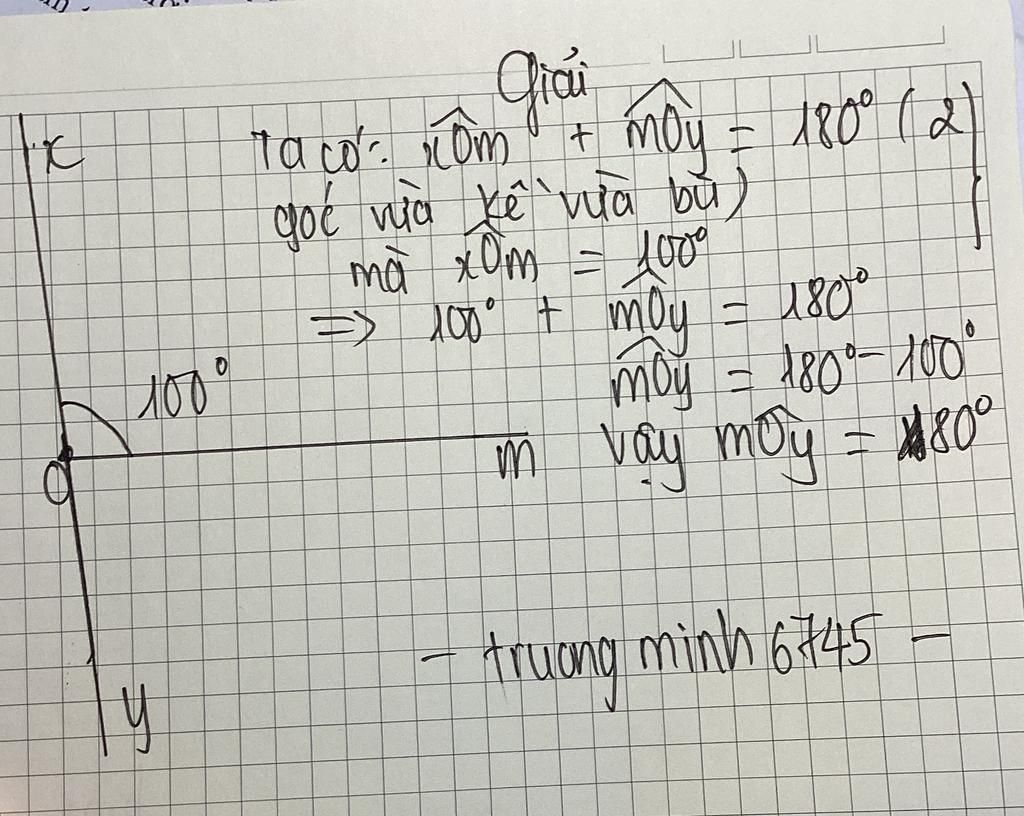 Giải
x Ta có: xOm + mOy = 180° (2
góc vừa kề vừa bù)
mà xOm = 100°
=> 100° + mOy = 180°
mOy = 180° - 100°
100°
O m vậy mOy = 80°
- truong minh 6745 -
y